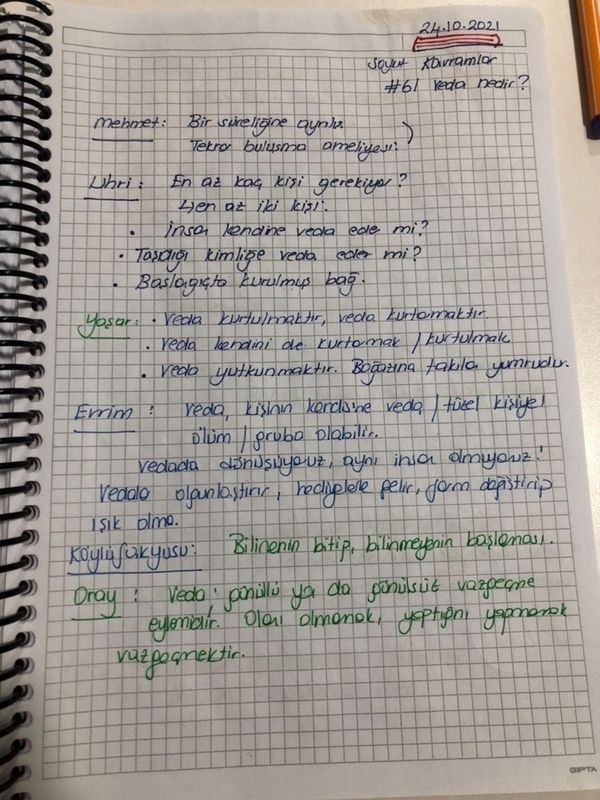 24.10.2021
Soyut Kavramlar
#61 veda nedir?
Mehmet: Bir süreliğine ayrılık.
Tekrar buluşma ameliyesi.
Uhri: En az kaç kişi gerekiyor?
↳ en az iki kişi.
• İnsan kendine veda eder mi?
• Taşıdığı kimliğe veda eder mi?
• Başlagıçta kurulmuş bağ.
Yaşar: • Veda kurtulmaktır, veda kurtarmaktır.
• Veda kendini de kurtarmak / kurtulmak
• Veda yutkunmaktır. Boğazına takıla yumrudur.
Evrim: Veda, kişinin kendisine veda / tüzel kişiye/
ölüm / gruba olabilir.
Vedada dönüşüyoruz, aynı insan olmuyoruz!
Vedala olgunlaştırır, hediyelerle gelir, form değiştirip
ışık olma.
Bilinenin bitip, bilinmeyenin başlaması.
Oray: Veda; gönüllü ya da gönülsüz vazgeçme
eylemidir. Olanı olmamak, yaptığını yapmamak
vazgeçmektir.
GIPTA